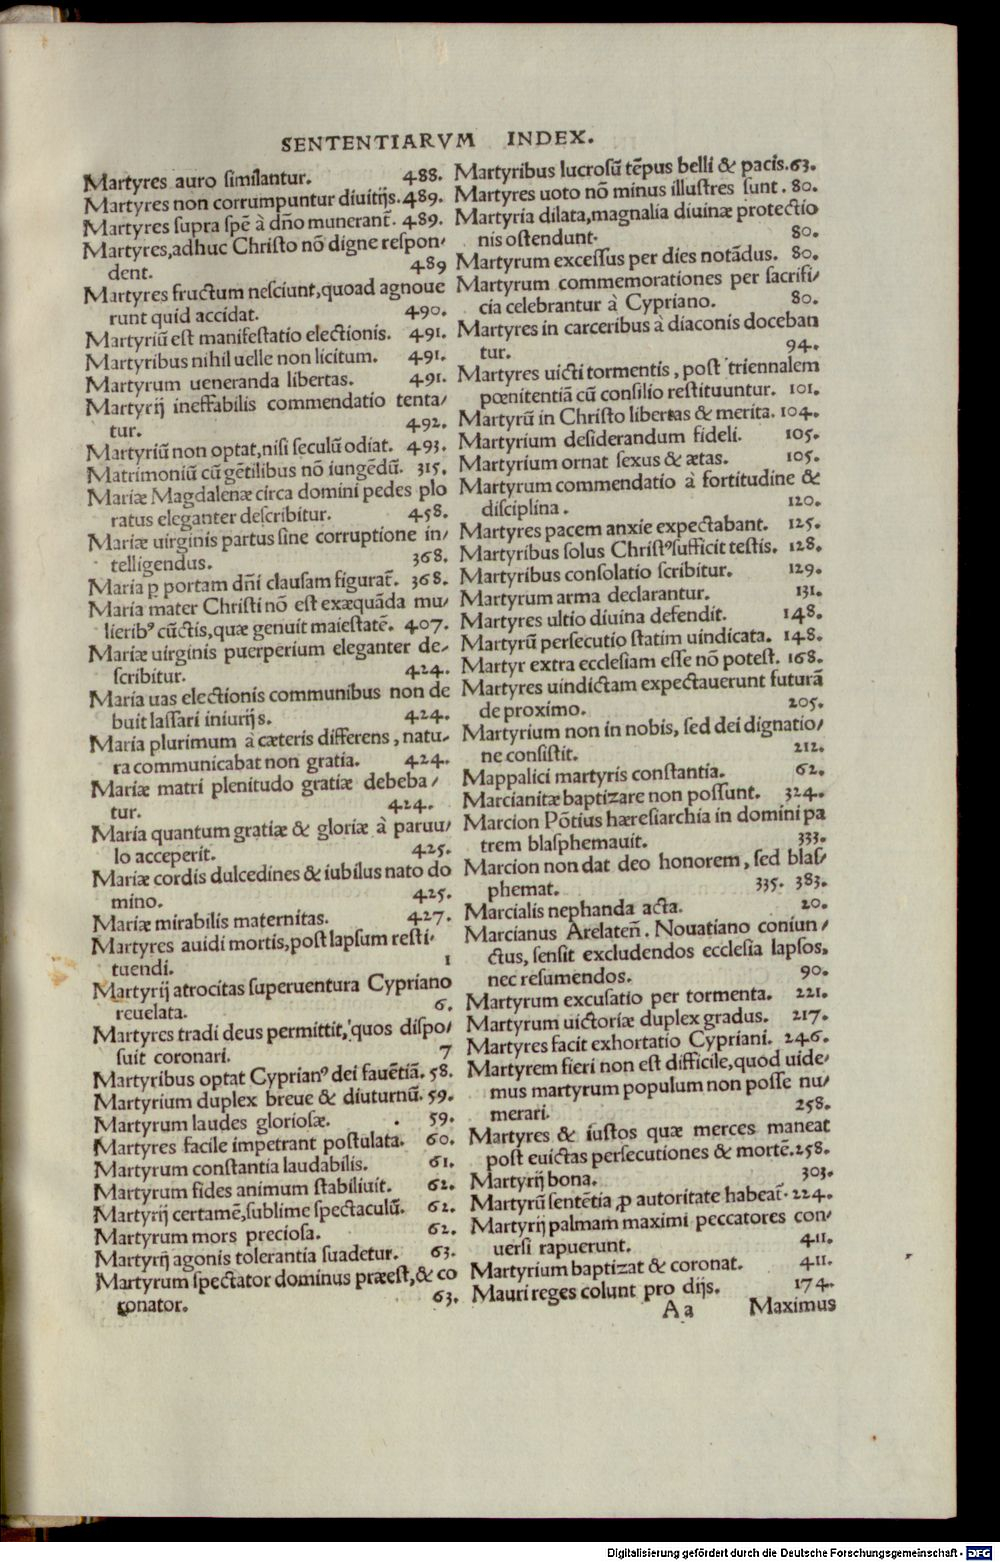 SENTENTIARVM INDEX.
Martyres auro similantur. 488.
Martyres non corrumpuntur diuitijs. 489.
Martyres supra spē à dño munerant̃. 489.
Martyres, adhuc Christo nõ digne respon-
dent. 489
Martyres fructum nesciunt, quoad agnoue
runt quid accidat. 490.
Martyriũ est manifestatio electionis. 491.
Martyribus nihil uelle non licitum. 491.
Martyrum ueneranda libertas. 491.
Martyrij ineffabilis commendatio tenta-
tur. 492.
Martyriũ non optat, nisi seculũ odiat. 493.
Matrimoniũ cũ gẽtilibus nõ iungẽdũ. 315.
Mariæ Magdalenæ circa domini pedes plo
ratus eleganter describitur. 458.
Mariæ uirginis partus sine corruptione in-
telligendus. 368.
Maria ꝑ portam dñi clausam figurat̃. 368.
Maria mater Christi nõ est exæquãda mu-
lieribꝰ cũctis, quæ genuit maiestatẽ. 407.
Mariæ uirginis puerperium eleganter de-
scribitur. 424.
Maria uas electionis communibus non de
buit lassari iniurijs. 424.
Maria plurimum à cæteris differens, natu-
ra communicabat non gratia. 424.
Mariæ matri plenitudo gratiæ debeba-
tur. 424.
Maria quantum gratiæ & gloriæ à paruu-
lo acceperit. 425.
Mariæ cordis dulcedines & iubilus nato do
mino. 425.
Mariæ mirabilis maternitas. 427.
Martyres auidi mortis, post lapsum resti-
tuendi. 1
Martyrij atrocitas superuentura Cypriano
reuelata. 6.
Martyres tradi deus permittit, quos dispo-
suit coronari. 7
Martyribus optat Cyprianꝰ dei fauẽtiã. 58.
Martyrium duplex breue & diuturnũ. 59.
Martyrum laudes gloriosæ. 59.
Martyres facile impetrant postulata. 60.
Martyrum constantia laudabilis. 61.
Martyrum fides animum stabiliuit. 62.
Martyrij certamẽ, sublime spectaculũ. 62.
Martyrum mors preciosa. 62.
Martyrij agonis tolerantia suadetur. 63.
Martyrum spectator dominus præest, & co
ronator. 63.
Martyribus lucrosũ tẽpus belli & pacis. 63.
Martyres uoto nõ minus illustres sunt. 80.
Martyria dilata, magnalia diuinæ protectio
nis ostendunt. 80.
Martyrum excessus per dies notãdus. 80.
Martyrum commemorationes per sacrifi-
cia celebrantur à Cypriano. 80.
Martyres in carceribus à diaconis doceban
tur. 94.
Martyres uicti tormentis, post triennalem
pœnitentiã cũ consilio restituuntur. 101.
Martyrũ in Christo libertas & merita. 104.
Martyrium desiderandum fideli. 105.
Martyrium ornat sexus & ætas. 105.
Martyrum commendatio à fortitudine &
disciplina. 120.
Martyres pacem anxie expectabant. 125.
Martyribus solus Christꝰ sufficit testis. 128.
Martyribus consolatio scribitur. 129.
Martyrum arma declarantur. 131.
Martyres ultio diuina defendit. 148.
Martyrũ persecutio statim uindicata. 148.
Martyr extra ecclesiam esse nõ potest. 168.
Martyres uindictam expectauerunt futurã
de proximo. 205.
Martyrium non in nobis, sed dei dignatio-
ne consistit. 212.
Mappalici martyris constantia. 62.
Marcianitæ baptizare non possunt. 324.
Marcion Põtius hæresiarchia in domini pa
trem blasphemauit. 333.
Marcion non dat deo honorem, sed blas-
phemat. 335. 383.
Marcialis nephanda acta. 20.
Marcianus Arelateñ. Nouatiano coniun-
ctus, sensit excludendos ecclesia lapsos,
nec resumendos. 90.
Martyrum excusatio per tormenta. 221.
Martyrum uictoriæ duplex gradus. 217.
Martyres facit exhortatio Cypriani. 246.
Martyrem fieri non est difficile, quod uide-
mus martyrum populum non posse nu-
merari. 258.
Martyres & iustos quæ merces maneat
post euictas persecutiones & mortẽ. 258.
Martyrij bona. 303.
Martyrũ sentẽtia ꝓ autoritate habeat̃. 224.
Martyrij palmam maximi peccatores con-
uersi rapuerunt. 411.
Martyrium baptizat & coronat. 411.
Mauri reges colunt pro dijs. 174.
Aa Maximus
Digitalisierung gefördert durch die Deutsche Forschungsgemeinschaft - DFG